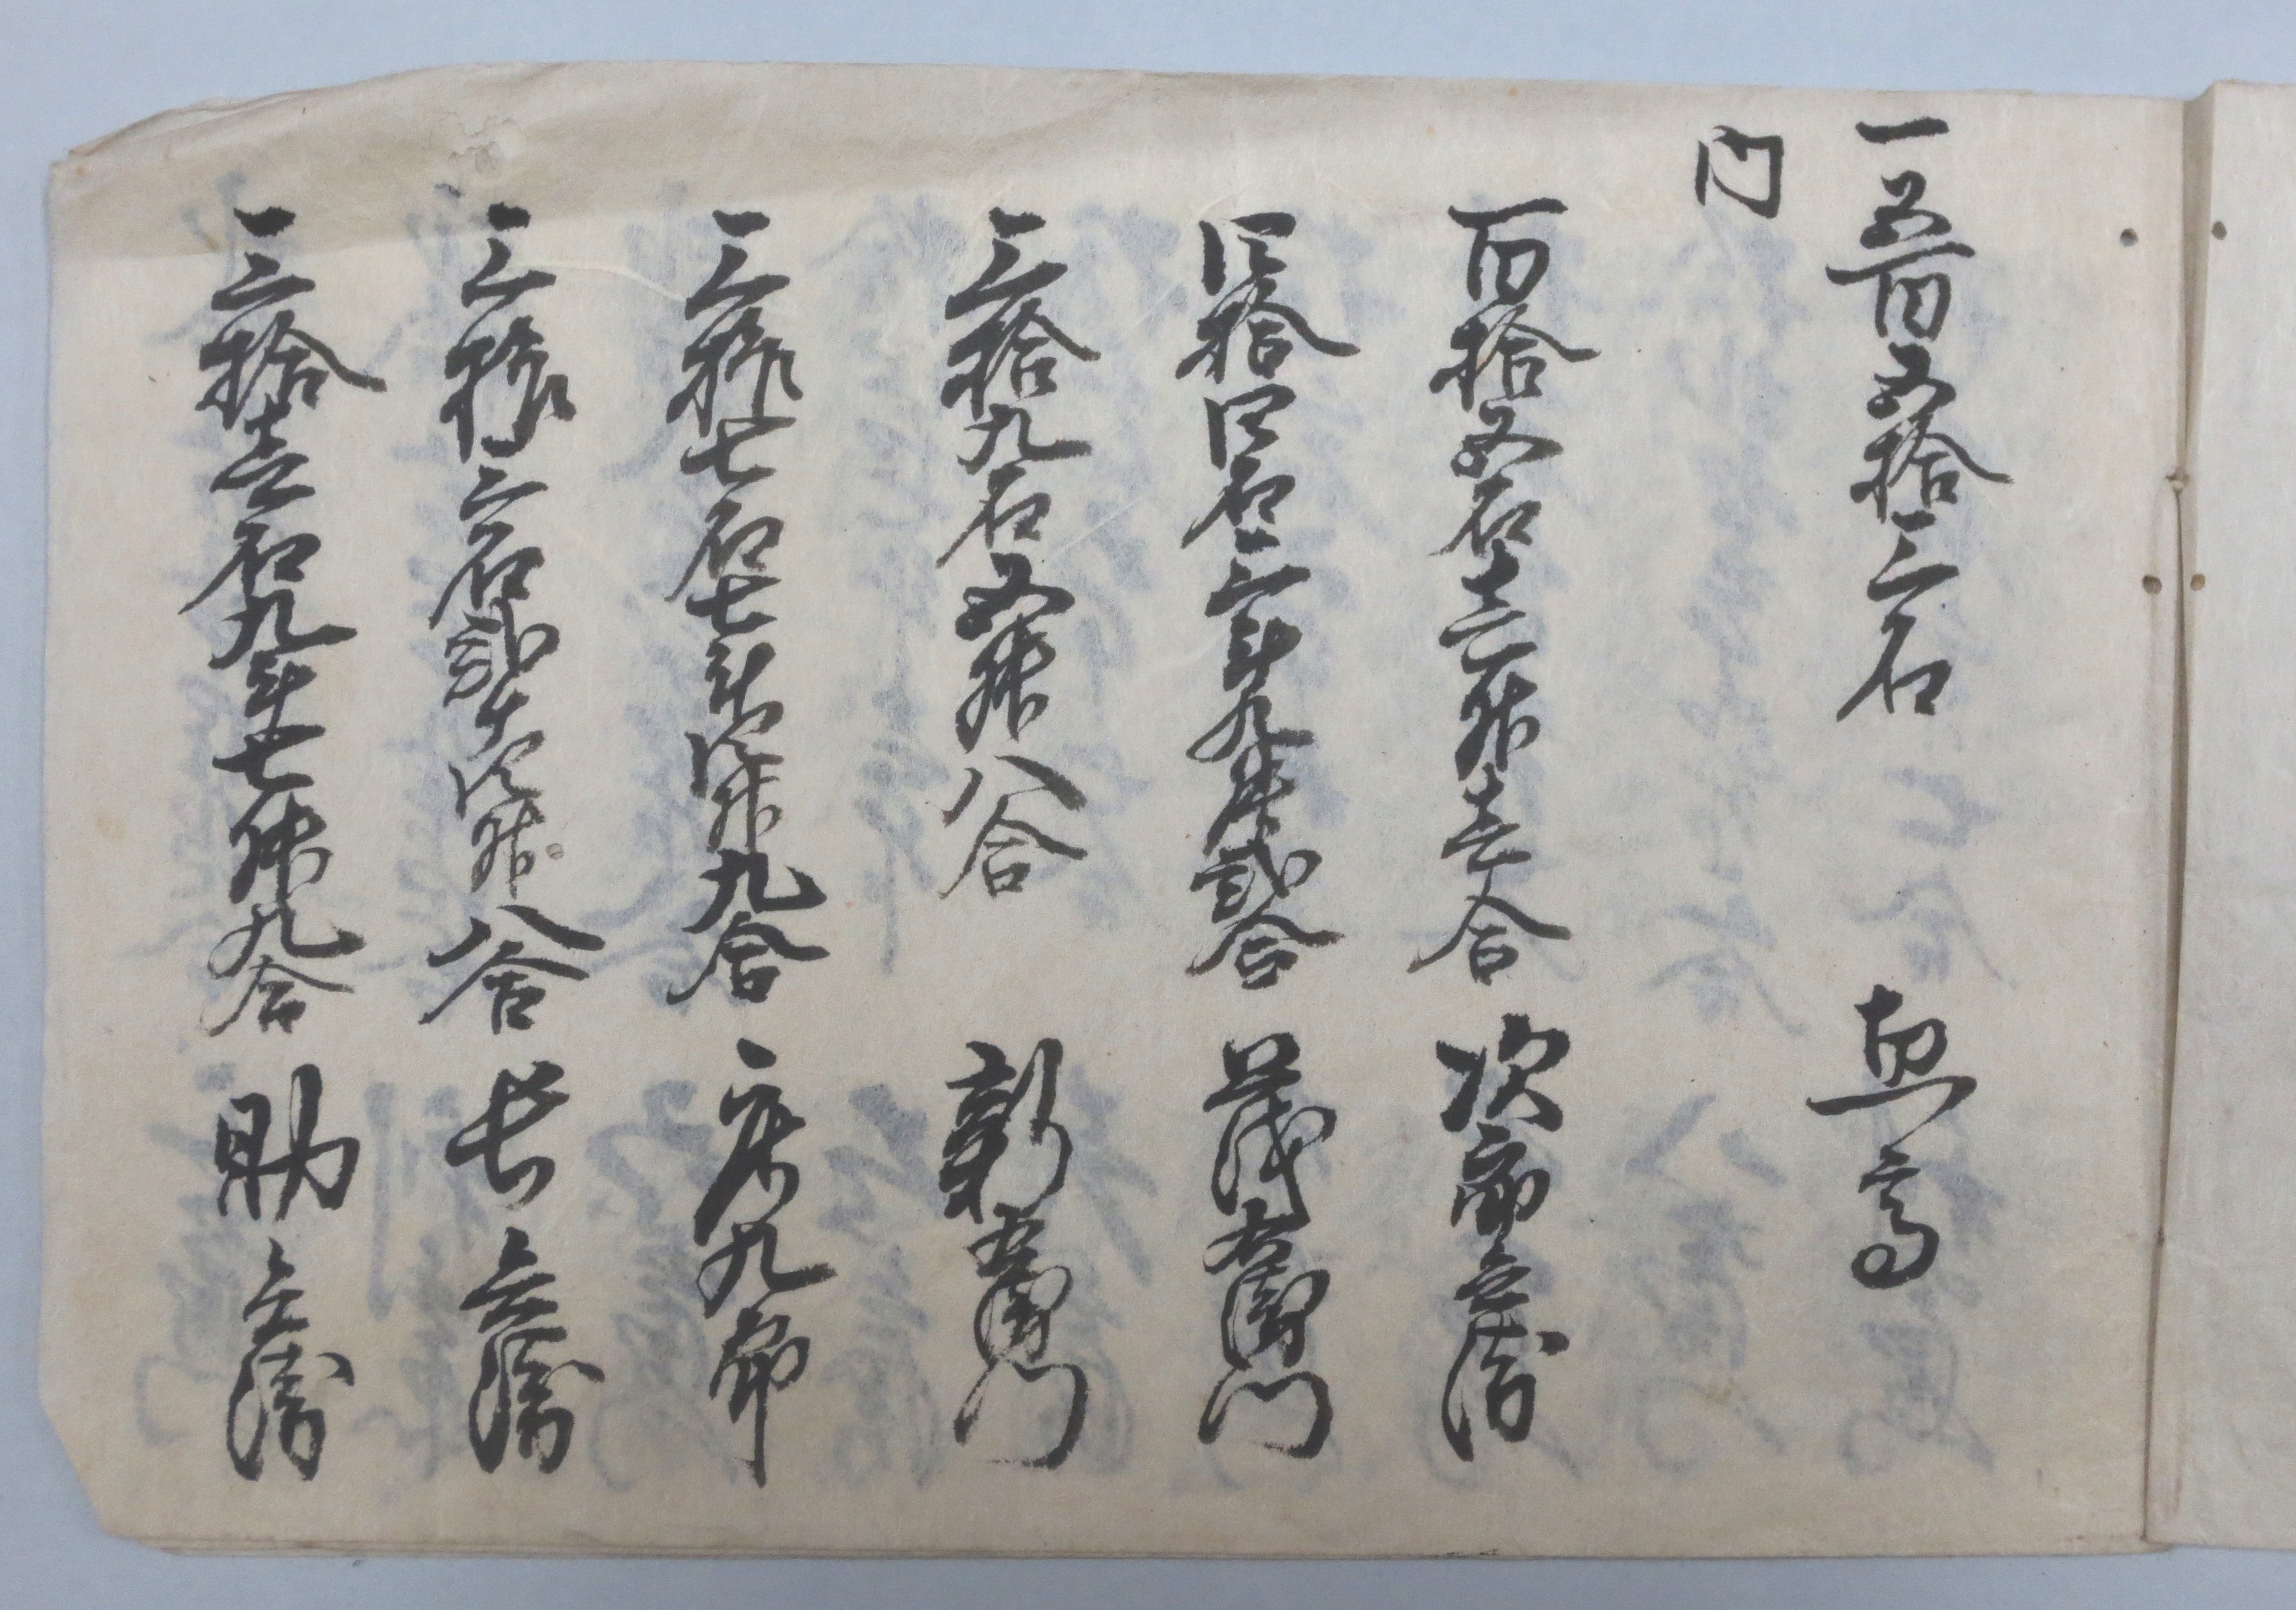 一五百五拾三石 惣高
内
百拾五石壱升壱合 次郎兵衛
四拾四石三斗九升弐合 茂右衛門
三拾九石五升八合 新右衛門
三拾七石七斗四升九合 庄九郎
三拾三石弐斗四升八合 長兵衛
三拾壱石九斗七升九合 助兵衛